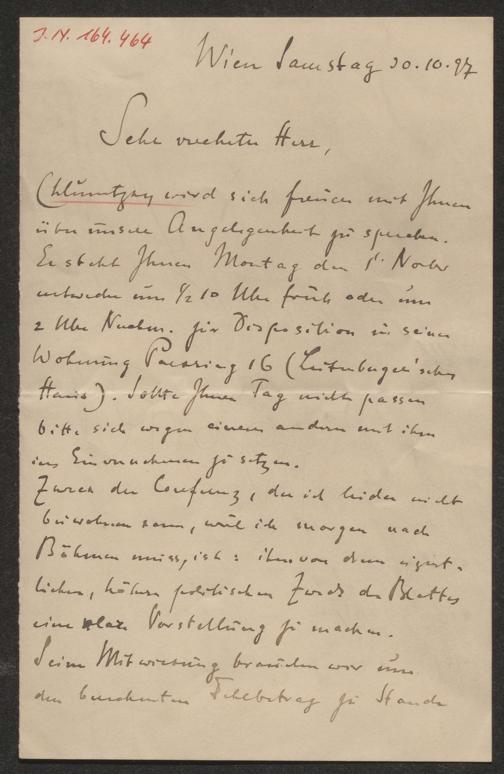 J.N. 164.464
Wien Samstag 30.10.97
Sehr verehrter Herr,
Chlumetzky wird sich freuen mit Ihnen
über unsere Angelegenheit zu sprechen.
Er steht Ihnen Montag den 1. Novbr
entweder um ½10 Uhr früh oder um
2 Uhr Nachm. zur Disposition in seiner
Wohnung Parkring 16 (Leitenberger'sches
Haus). Sollte Ihnen Tag nicht passen
bitte sich wegen einem andern mit ihm
ins Einvernehmen zu setzen.
Zweck der Conferenz, der ich leider nicht
beiwohnen kann, weil ich morgen nach
Böhmen muss, ist: ihm von dem eigent-
lichen, höhern politischen Zweck des Blattes
eine klare Vorstellung zu machen.
Seine Mitwirkung brauchen wir um
den bewussten Fehlbetrag zu Stande